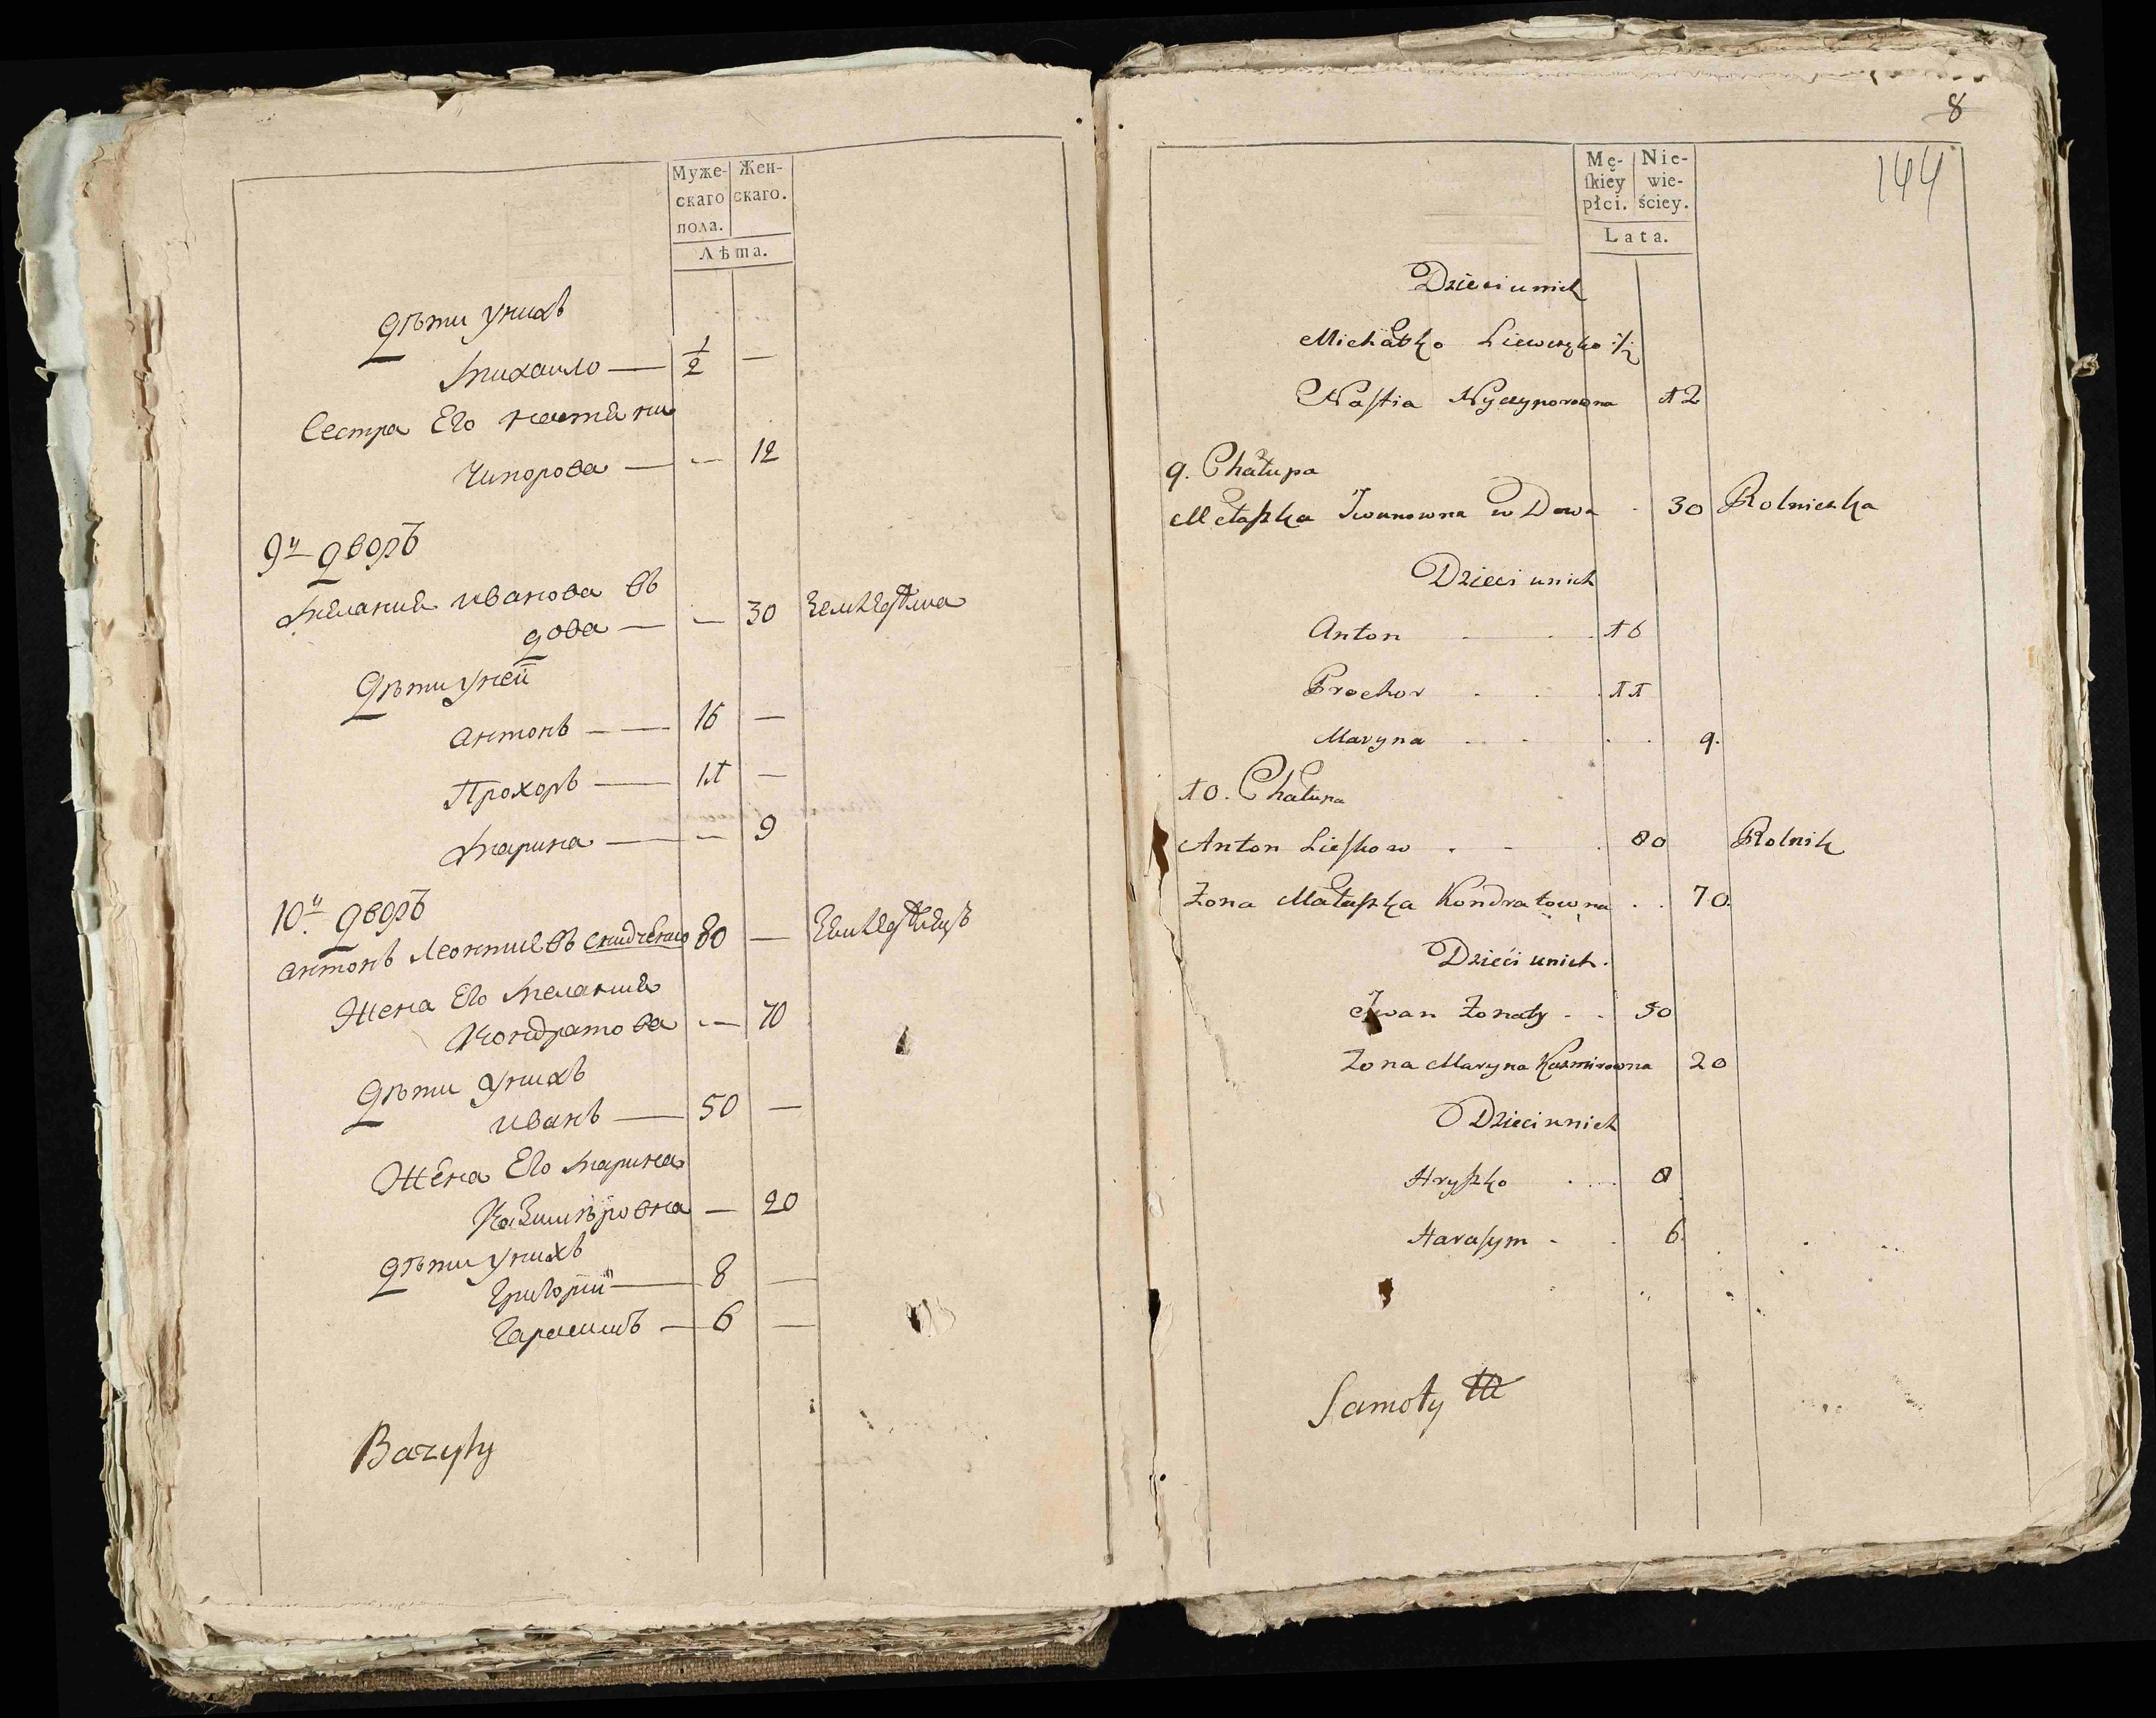 Муже- Жен-
скаго скаго.
пола.
Лѣта.
Дѣти у нихъ
Михаило — 1/2 —
Сестра Его настаѣ ни
Чипорова — — 12
9й дворъ
Мѣланиѣ иванова въ
дова — — 30
Дѣти у ней
антонъ — — 16 —
Прохоръ — 11 —
Марина — — 9
10й дворъ
антонъ Леонтиевъ 80 —
Жена Его Меланиѣ
Кондратова — 70
Дѣти у нихъ
иванъ — 50 —
Жена Его Марина
Казимѣровна — 20
Дѣти у нихъ
Григорий — 8 —
Гарасимъ — 6 —
Bazyly
8
144
Mę- Nie-
ſkiey wie-
płci. ściey.
Lata.
Dzieci u nich
Michałko 1/2
Naſtia Nyczyporowna 12
9. Chałupa
Mełaſzka Iwanowna w Dowa 30 Rolniczka
Dzieci u nich
Anton 16
Prochor 11
Maryna 9.
10. Chałupa
Anton Lieſkow 80 Rolnik
Żona Małaſzka Kondratowna 70.
Dzieci u nich.
Iwan Żonaty 50
Żona Maryna Kazmirowna 20
Dzieci u nich
Hryſzko 8
Haraſym 6.
Samoły